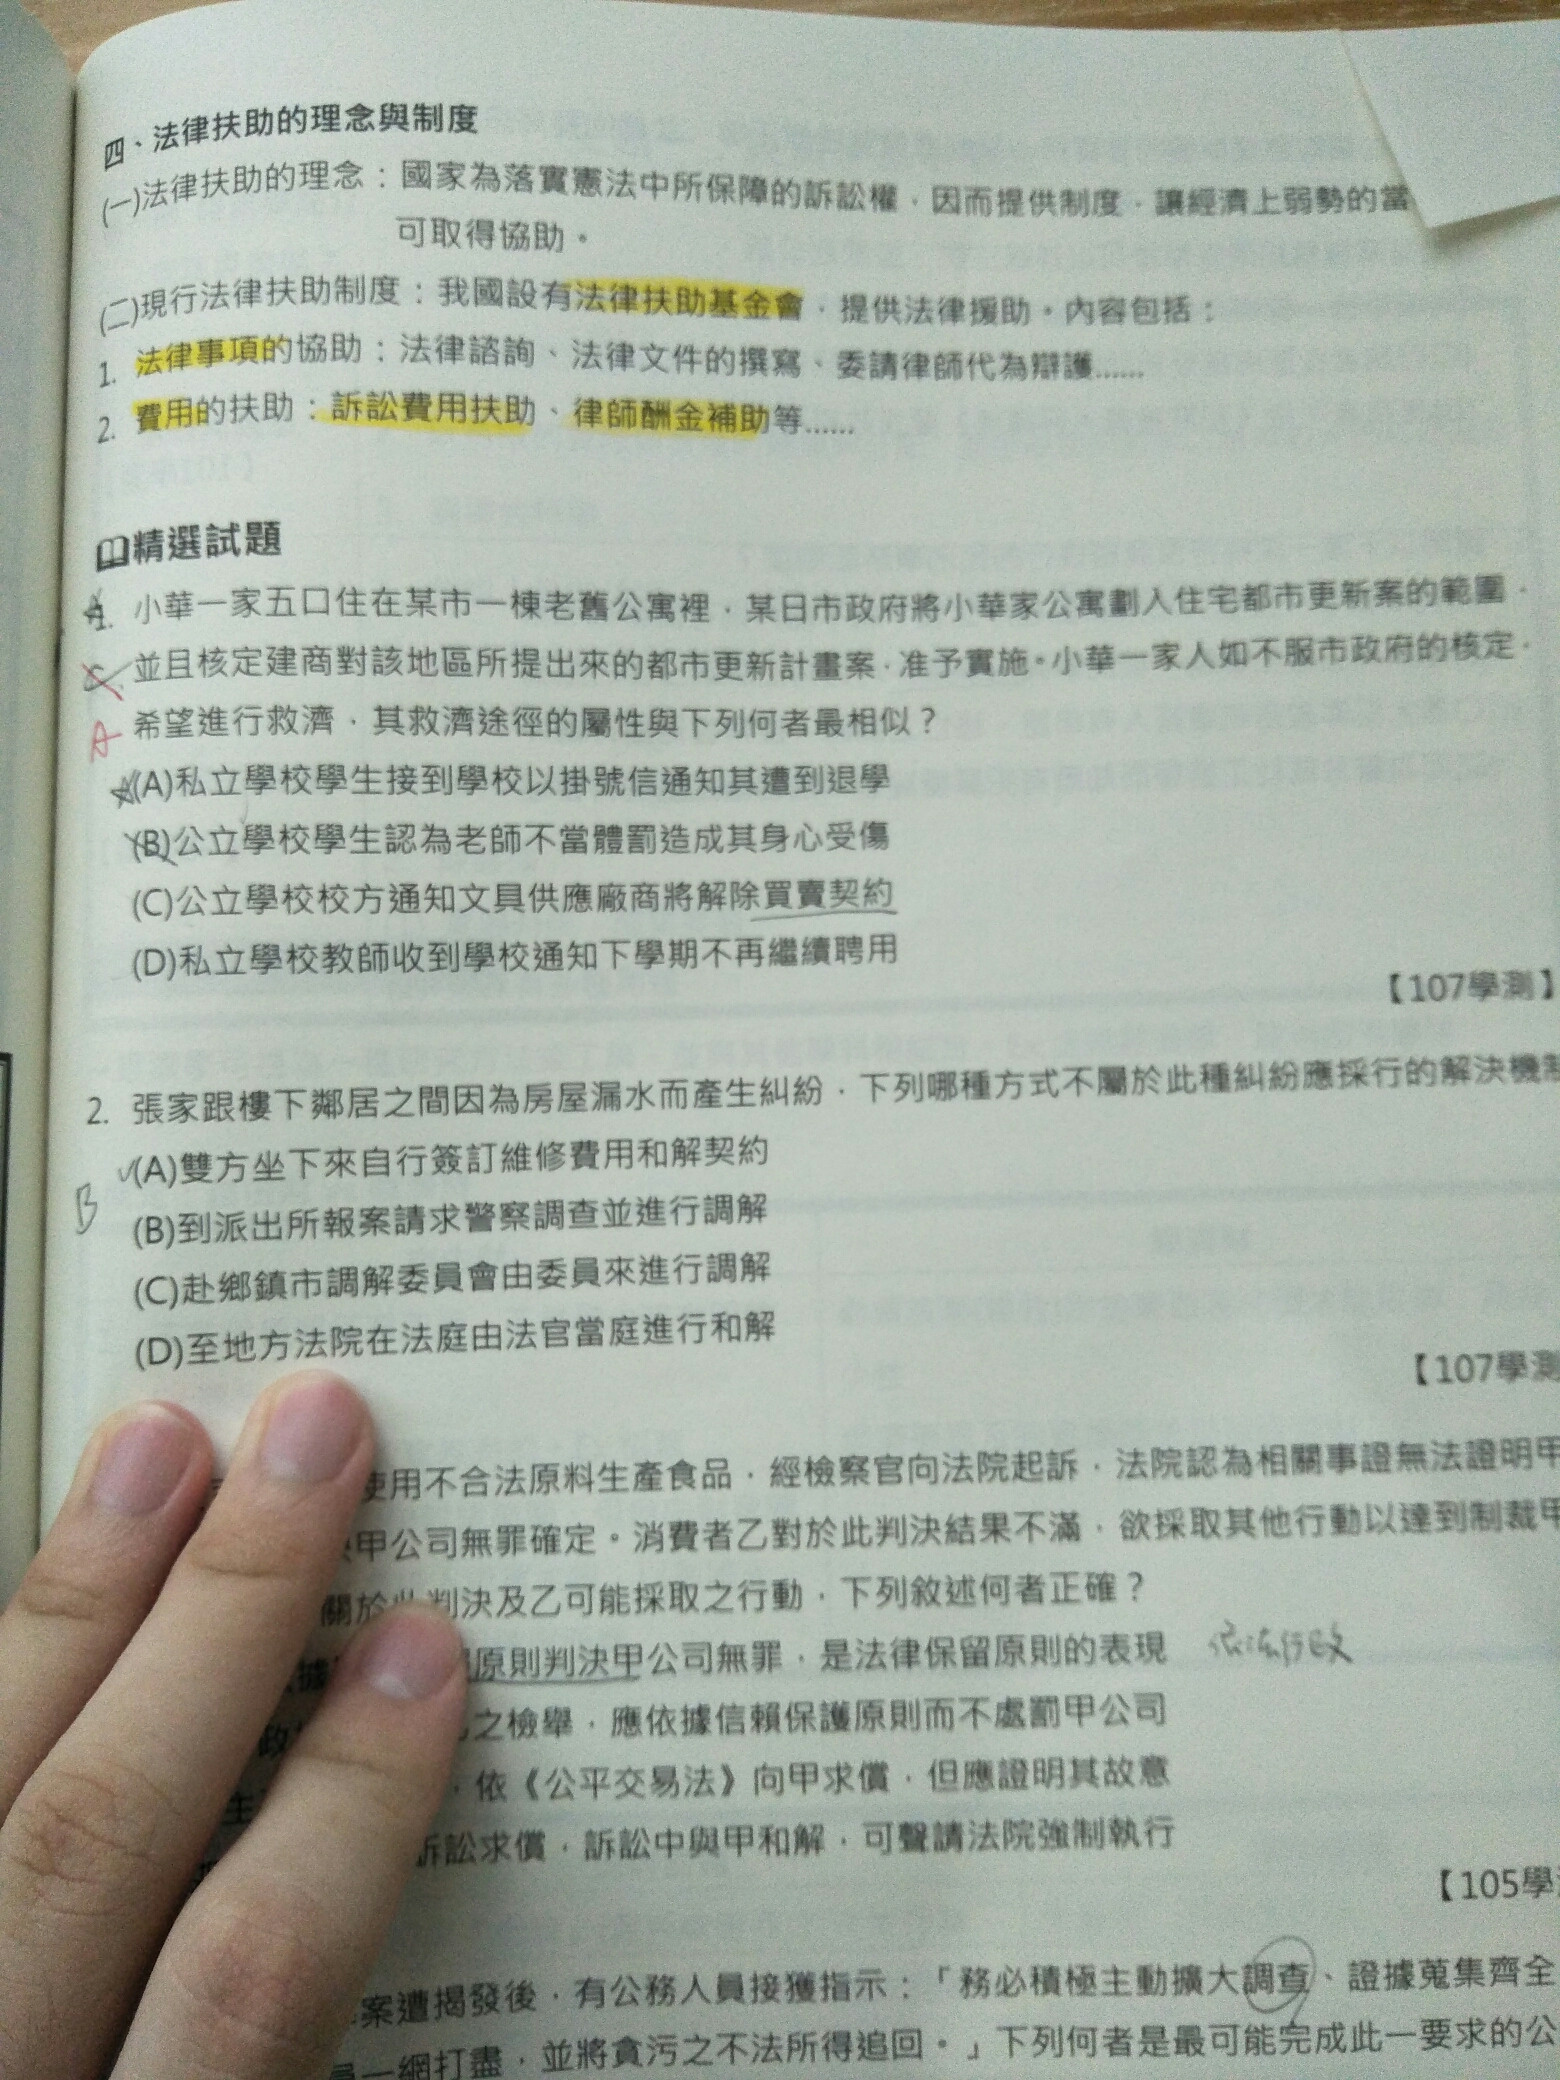 四、法律扶助的理念與制度
(一)法律扶助的理念：國家為落實憲法中所保障的訴訟權，因而提供制度，讓經濟上弱勢的當
可取得協助。
(二)現行法律扶助制度：我國設有法律扶助基金會，提供法律援助。內容包括：
1. 法律事項的協助：法律諮詢、法律文件的撰寫、委請律師代為辯護……
2. 費用的扶助：訴訟費用扶助、律師酬金補助等……
精選試題
1. 小華一家五口住在某市一棟老舊公寓裡，某日市政府將小華家公寓劃入住宅都市更新案的範圍，
並且核定建商對該地區所提出來的都市更新計畫案，准予實施。小華一家人如不服市政府的核定，
A 希望進行救濟，其救濟途徑的屬性與下列何者最相似？
(A)私立學校學生接到學校以掛號信通知其遭到退學
(B)公立學校學生認為老師不當體罰造成其身心受傷
(C)公立學校校方通知文具供應廠商將解除買賣契約
(D)私立學校教師收到學校通知下學期不再繼續聘用
【107學測】
2. 張家跟樓下鄰居之間因為房屋漏水而產生糾紛，下列哪種方式不屬於此種糾紛應採行的解決機制
(A)雙方坐下來自行簽訂維修費用和解契約
B
(B)到派出所報案請求警察調查並進行調解
(C)赴鄉鎮市調解委員會由委員來進行調解
(D)至地方法院在法庭由法官當庭進行和解
【107學測
使用不合法原料生產食品，經檢察官向法院起訴，法院認為相關事證無法證明甲
甲公司無罪確定。消費者乙對於此判決結果不滿，欲採取其他行動以達到制裁甲
關於此判決及乙可能採取之行動，下列敘述何者正確？
原則判決甲公司無罪，是法律保留原則的表現 依法行政
之檢舉，應依據信賴保護原則而不處罰甲公司
，依《公平交易法》向甲求償，但應證明其故意
訴訟求償，訴訟中與甲和解，可聲請法院強制執行
【105學
案遭揭發後，有公務人員接獲指示：「務必積極主動擴大調查、證據蒐集齊全
一網打盡，並將貪污之不法所得追回。」下列何者是最可能完成此一要求的公